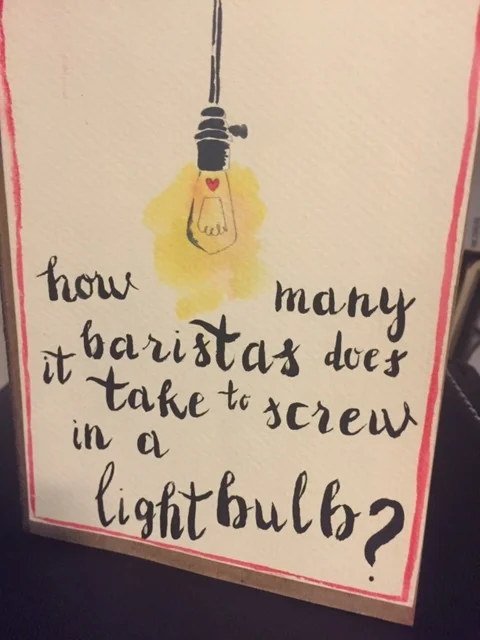 how many
baristas does
it take to screw
in a
lightbulb?